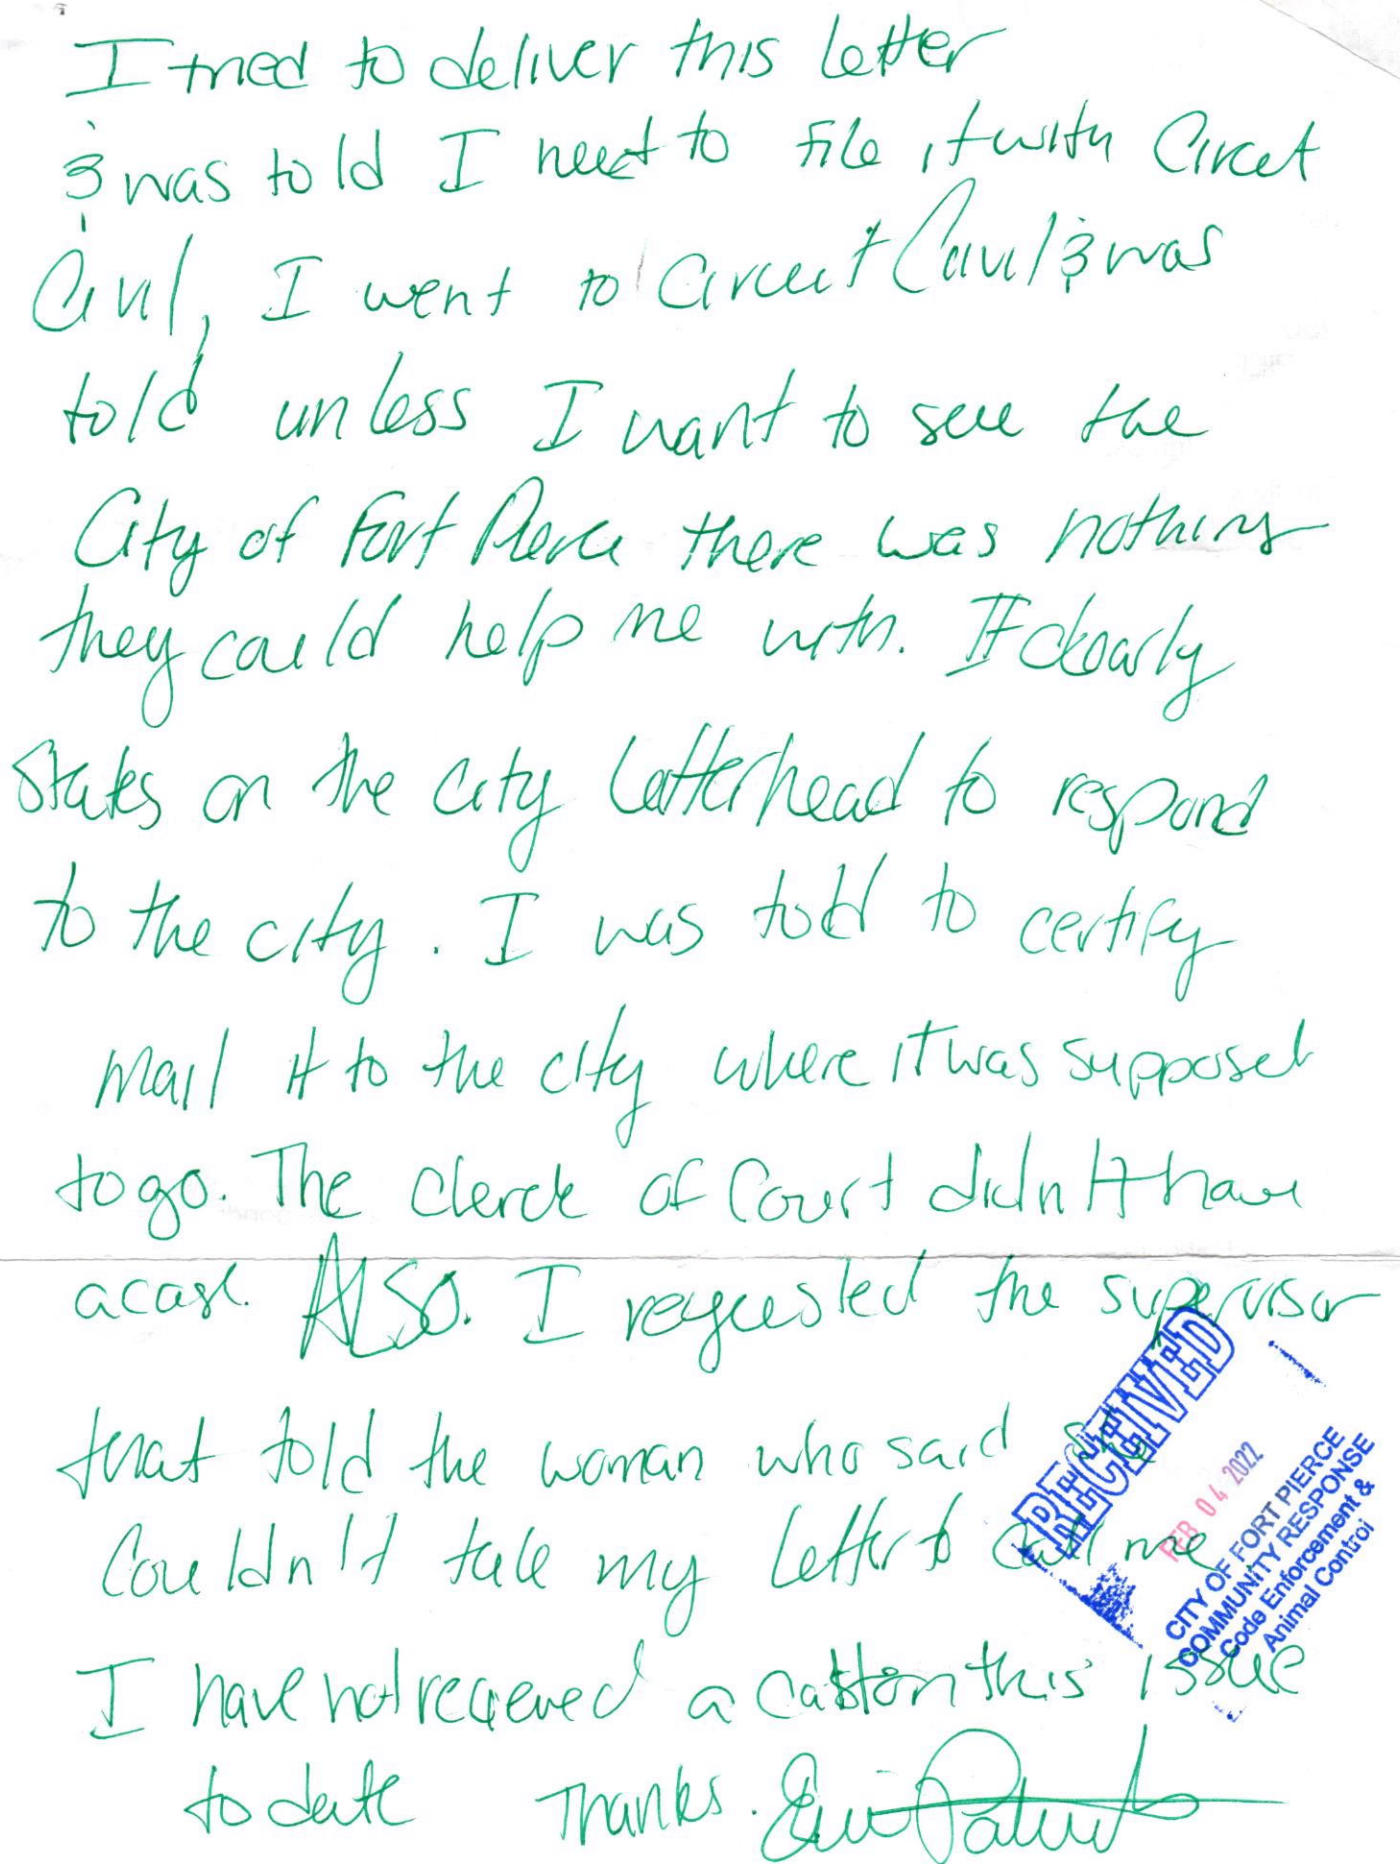 I tried to deliver this letter
& was told I need to file it with Circut
Civil, I went to Circuit Civil & was
told unless I want to sue the
City of Fort Pierce there was nothing
they could help me with. It clearly
States on the city letterhead to respond
to the city. I was told to certify
mail it to the city where it was supposed
to go. The Clerck of Court didn't have
a case. ALSO. I requested the supervisor
that told the woman who said she
Couldn't take my letter to call me
I have not recieved a call on this issue
to date Thanks.
RECEIVED
FEB 04 2022
CITY OF FORT PIERCE
COMMUNITY RESPONSE
Code Enforcement &
Animal Control